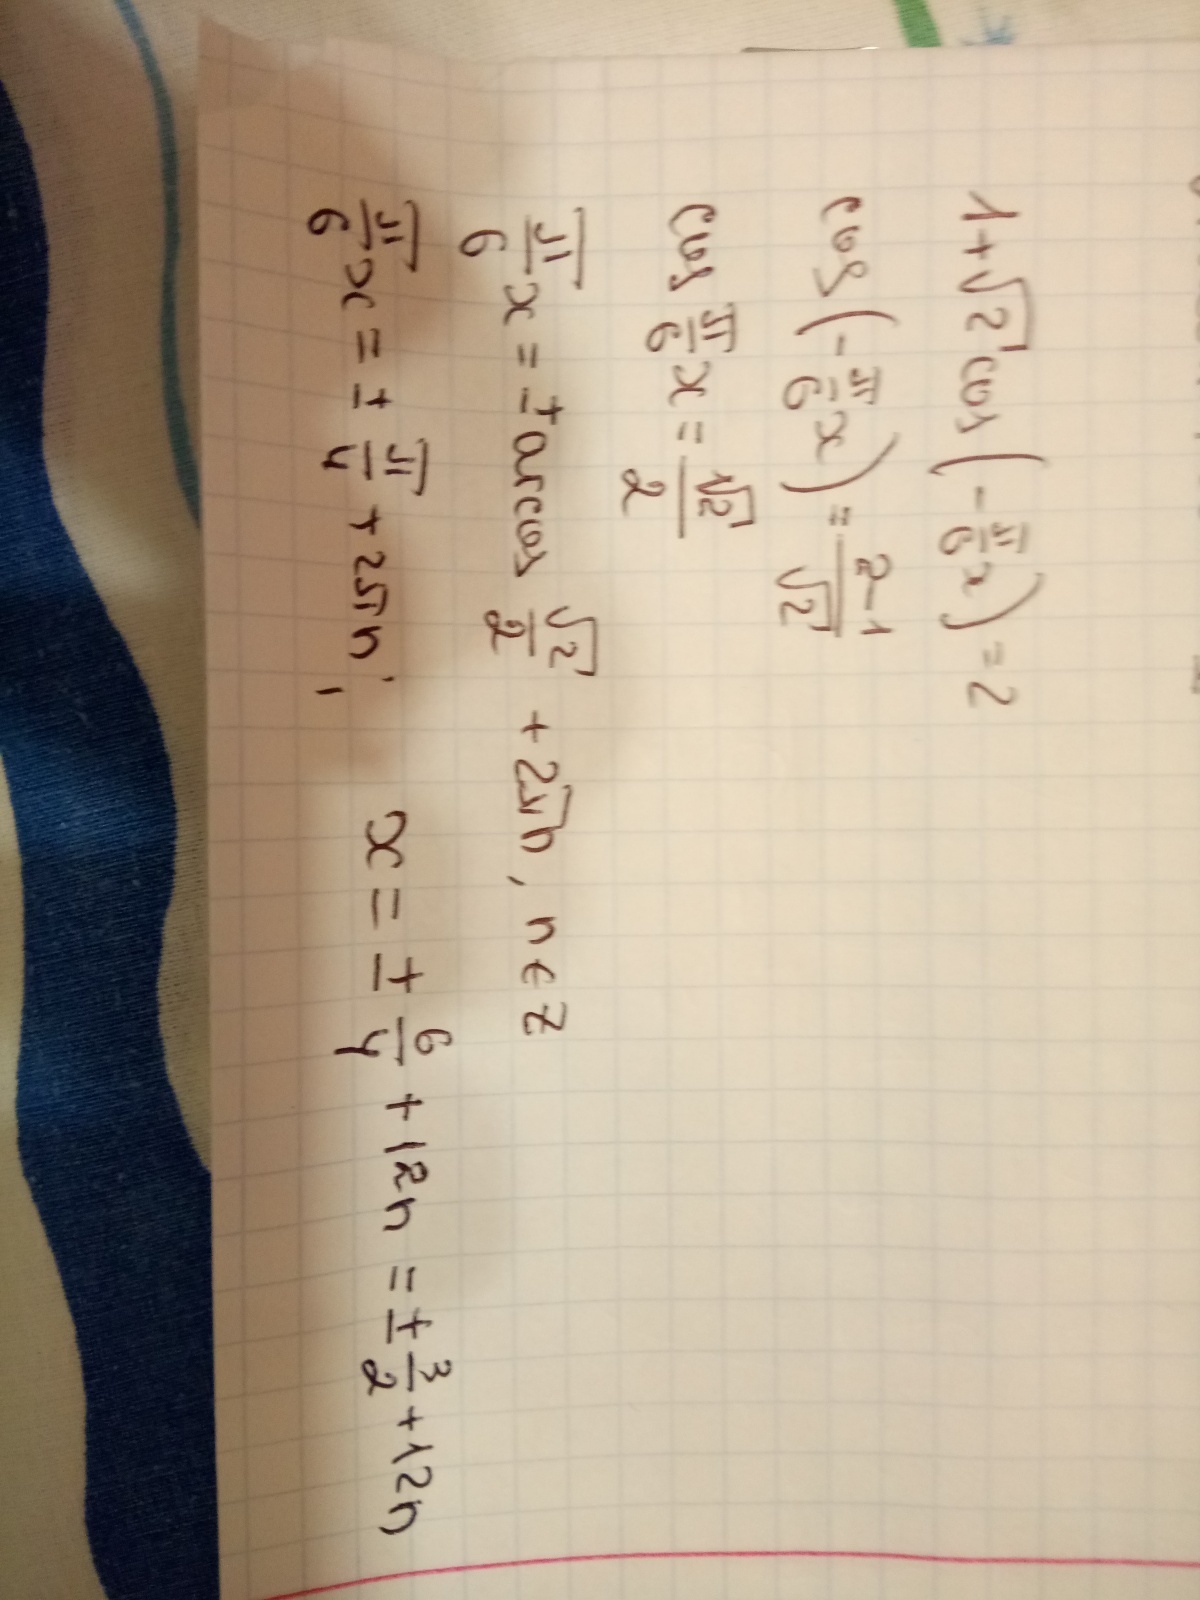 1+√2 cos(-π/6 x) = 2
cos(-π/6 x) = 2-1/√2
cos π/6 x = √2/2
π/6 x = ± arccos √2/2 + 2πn, n ∈ Z
π/6 x = ± π/4 + 2πn; x = ± 6/4 + 12n = ± 3/2 + 12n